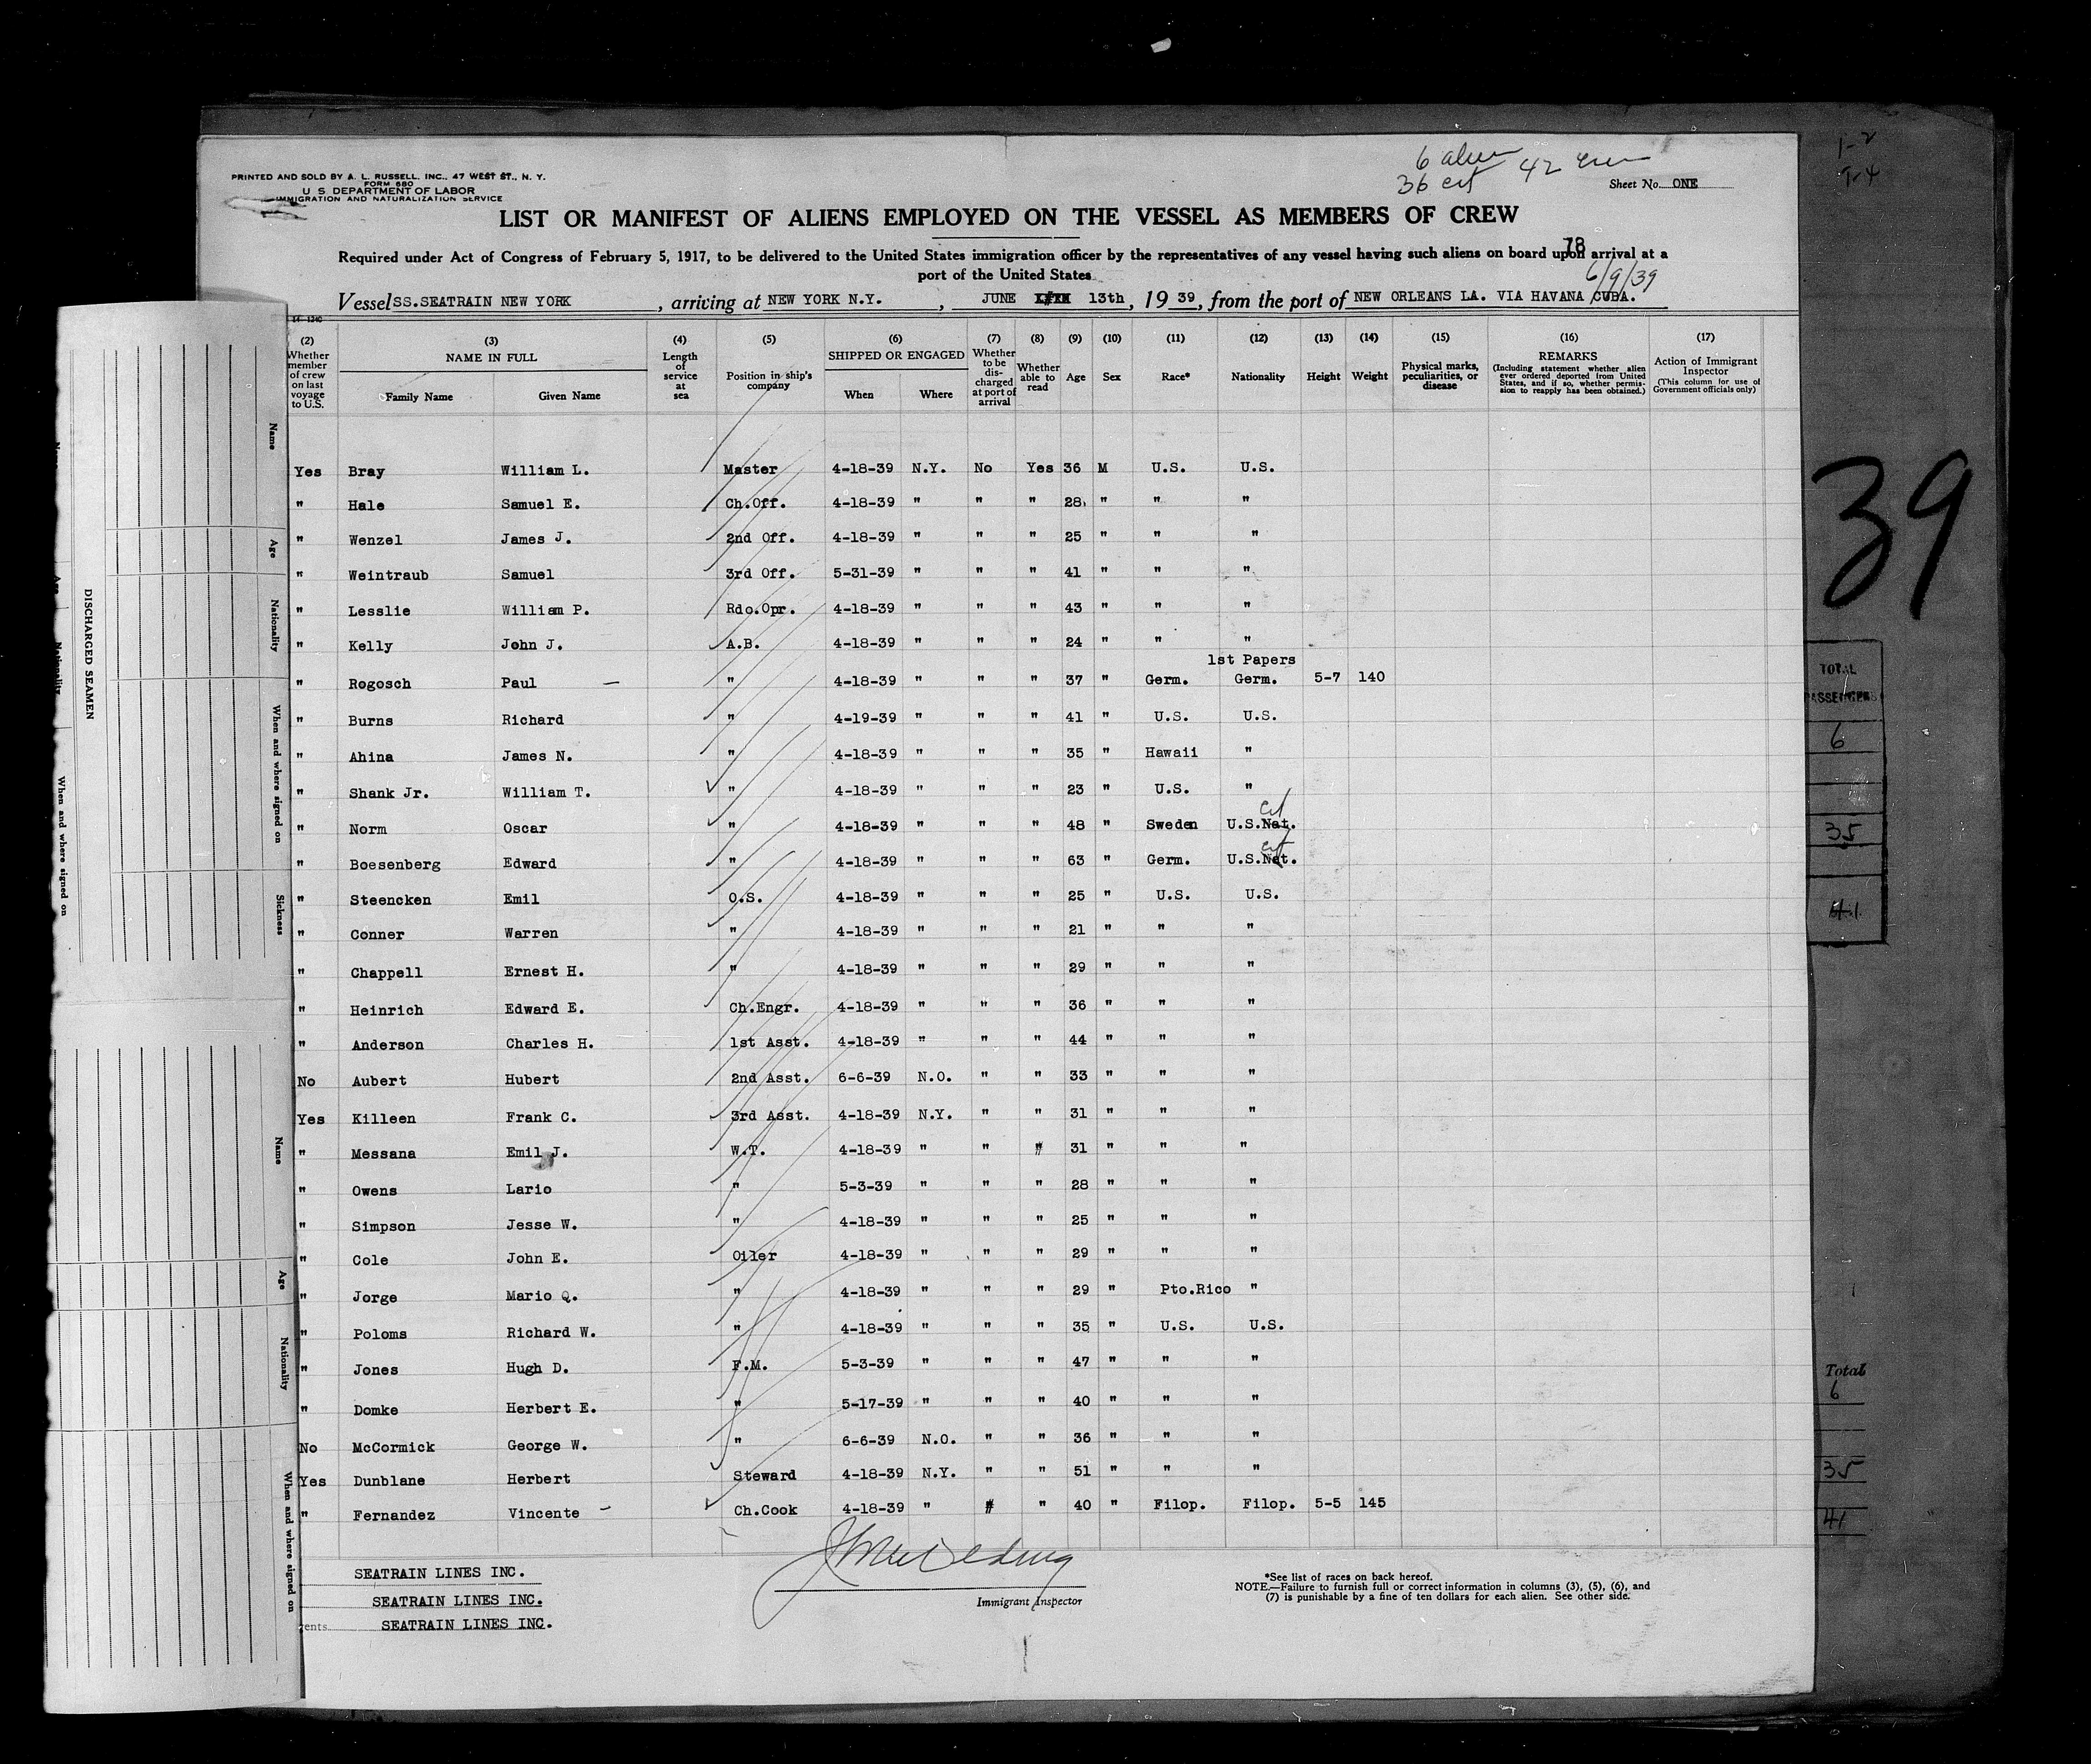 6 alien
36 cit 42 crew
1-2
1-4
PRINTED AND SOLD BY A. L. RUSSELL, INC., 47 WEST ST., N. Y.
FORM 680
U. S. DEPARTMENT OF LABOR
IMMIGRATION AND NATURALIZATION SERVICE
Sheet No. ONE
LIST OR MANIFEST OF ALIENS EMPLOYED ON THE VESSEL AS MEMBERS OF CREW
78
Required under Act of Congress of February 5, 1917, to be delivered to the United States immigration officer by the representatives of any vessel having such aliens on board upon arrival at a
port of the United States
6/9/39
Vessel SS.SEATRAIN NEW YORK, arriving at NEW YORK N.Y., JUNE 13th, 1939, from the port of NEW ORLEANS LA. VIA HAVANA CUBA.
(2) Whether member of crew on last voyage to U.S. (3) NAME IN FULL Family Name Given Name (4) Length of service at sea (5) Position in ship's company (6) SHIPPED OR ENGAGED When Where (7) Whether to be discharged at port of arrival (8) Whether able to read (9) Age (10) Sex (11) Race* (12) Nationality (13) Height (14) Weight (15) Physical marks, peculiarities, or disease (16) REMARKS (Including statement whether alien ever ordered deported from United States, and if so, whether permission to reapply has been obtained.) (17) Action of Immigrant Inspector (This column for use of Government officials only)
Yes Bray William L. Master 4-18-39 N.Y. No Yes 36 M U.S. U.S.
" Hale Samuel E. Ch.Off. 4-18-39 " " " 28 " " "
" Wenzel James J. 2nd Off. 4-18-39 " " " 25 " " "
" Weintraub Samuel 3rd Off. 5-31-39 " " " 41 " " "
" Lesslie William P. Rdo.Opr. 4-18-39 " " " 43 " " "
" Kelly John J. A.B. 4-18-39 " " " 24 " " "
1st Papers
" Rogosch Paul — " 4-18-39 " " " 37 " Germ. Germ. 5-7 140
" Burns Richard " 4-19-39 " " " 41 " U.S. U.S.
" Ahina James N. " 4-18-39 " " " 35 " Hawaii "
" Shank Jr. William T. " 4-18-39 " " " 23 " U.S. "
cit
" Norm Oscar " 4-18-39 " " " 48 " Sweden U.S.Nat.
cit
" Boesenberg Edward " 4-18-39 " " " 63 " Germ. U.S.Nat.
" Steencken Emil O.S. 4-18-39 " " " 25 " U.S. U.S.
" Conner Warren " 4-18-39 " " " 21 " " "
" Chappell Ernest H. " 4-18-39 " " " 29 " " "
" Heinrich Edward E. Ch.Engr. 4-18-39 " " " 36 " " "
" Anderson Charles H. 1st Asst. 4-18-39 " " " 44 " " "
No Aubert Hubert 2nd Asst. 6-6-39 N.O. " " 33 " " "
Yes Killeen Frank C. 3rd Asst. 4-18-39 N.Y. " " 31 " " "
" Messana Emil J. W.T. 4-18-39 " " " 31 " " "
" Owens Lario " 5-3-39 " " " 28 " " "
" Simpson Jesse W. " 4-18-39 " " " 25 " " "
" Cole John E. Oiler 4-18-39 " " " 29 " " "
" Jorge Mario Q. " 4-18-39 " " " 29 " Pto.Rico "
" Poloms Richard W. " 4-18-39 " " " 35 " U.S. U.S.
" Jones Hugh D. F.M. 5-3-39 " " " 47 " " "
" Domke Herbert E. " 5-17-39 " " " 40 " " "
No McCormick George W. " 6-6-39 N.O. " " 36 " " "
Yes Dunblane Herbert Steward 4-18-39 N.Y. " " 51 " " "
" Fernandez Vincente — Ch.Cook 4-18-39 " " " 40 " Filop. Filop. 5-5 145
SEATRAIN LINES INC.
SEATRAIN LINES INC.
SEATRAIN LINES INC.
Immigrant Inspector
*See list of races on back hereof.
NOTE.—Failure to furnish full or correct information in columns (3), (5), (6), and
(7) is punishable by a fine of ten dollars for each alien. See other side.
39
TOTAL
PASSENGERS
6
35
41
Total
6
35
41
DISCHARGED SEAMEN
Name
Age
Nationality
When and where signed on
Sickness
Name
Age
Nationality
When and where signed on
Nationality
When and where signed on